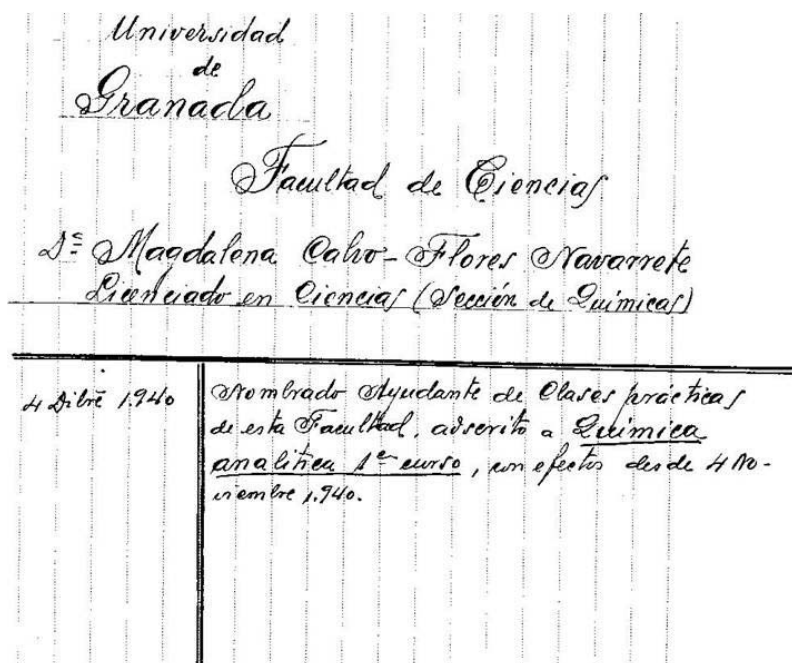 Universidad
de
Granada
Facultad de Ciencias
Dª Magdalena Calvo-Flores Navarrete
Licenciado en Ciencias (Sección de Químicas)
4 Dibre 1.940
Nombrado Ayudante de Clases prácticas
de esta Facultad, adscrito a Química
analítica 1er curso, con efectos desde 4 No-
viembre 1.940.